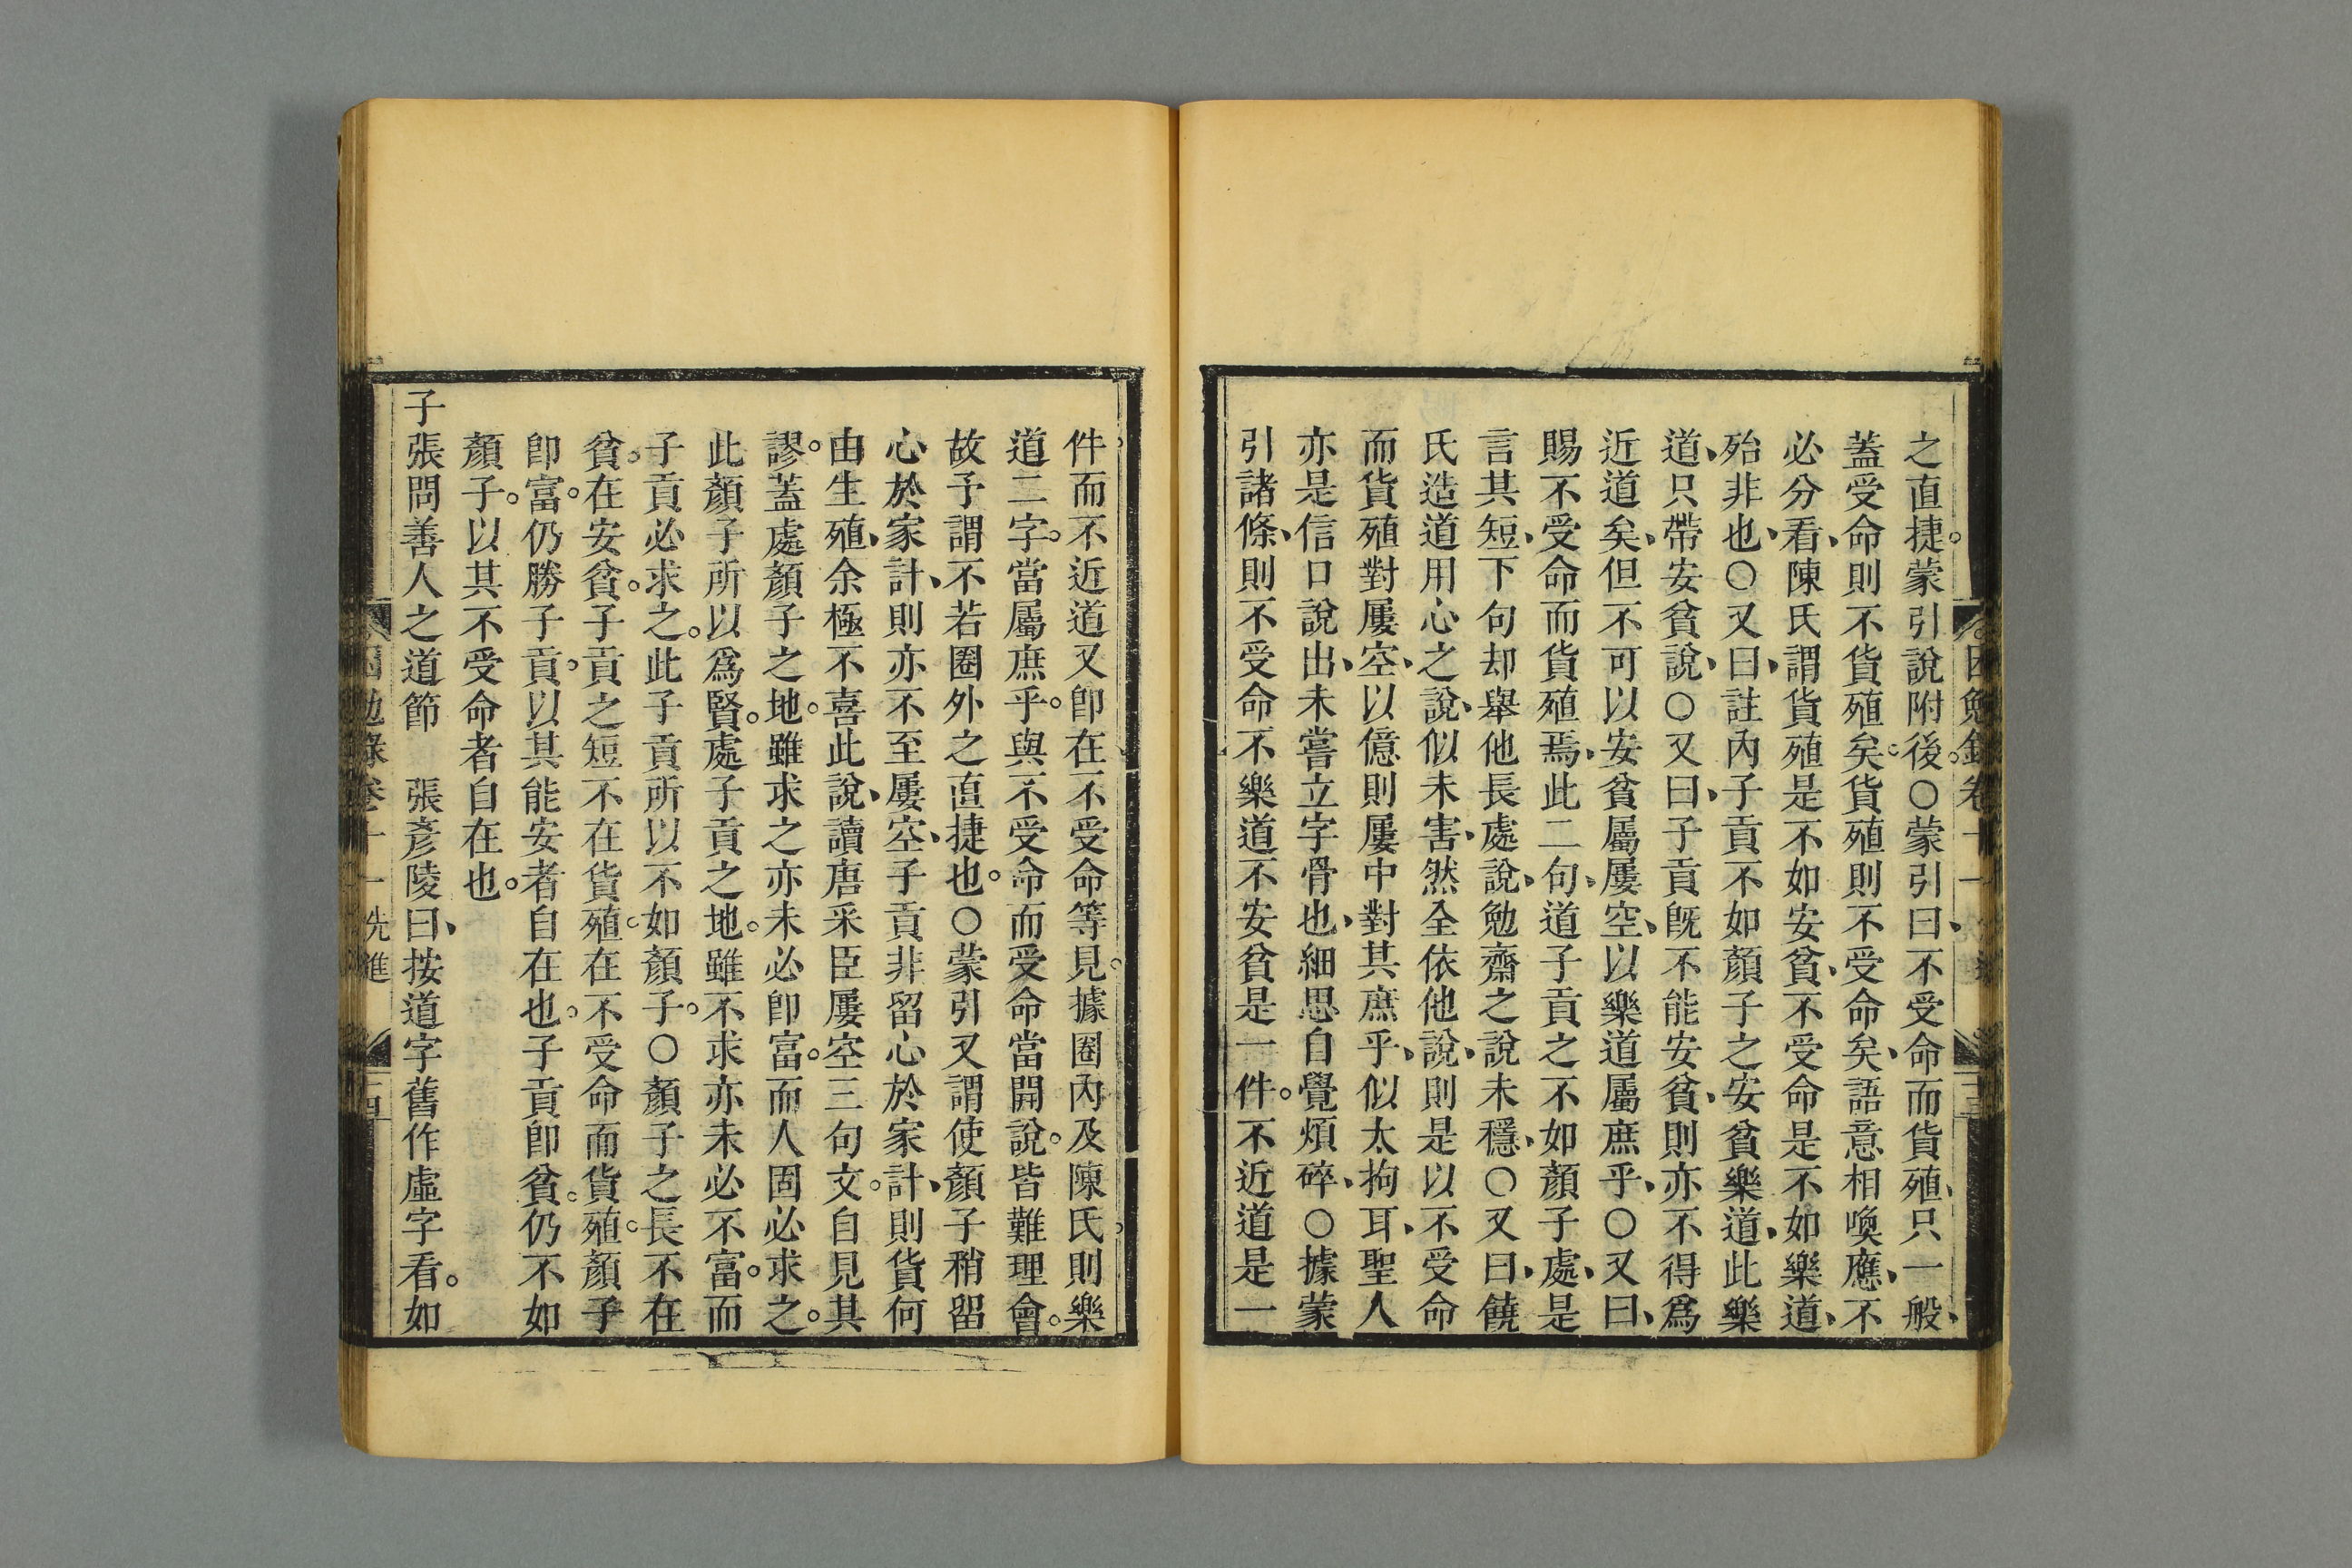 之直捷。蒙引說附後。○蒙引曰、不受命而貨殖、只一般、
蓋受命則不貨殖矣。貨殖則不受命矣、語意相喚應、不
必分看、陳氏謂貨殖是不如安貧、不受命是不如樂道、
殆非也、○又曰、註內子貢不如顏子之安貧樂道、此樂
道、只帶安貧說、○又曰、子貢旣不能安貧、則亦不得爲
近道矣、但不可以安貧屬屢空、以樂道屬庶乎、○又曰、
賜不受命而貨殖焉、此二句、道子貢之不如顏子處、是
言其短、下句却舉他長處說、勉齋之說未穩、○又曰、饒
氏造道用心之說、似未害、然全依他說、則是以不受命
而貨殖對屢空、以億則屢中對其庶乎、似太拘耳、聖人
亦是信口說出、未嘗立字骨也、細思自覺煩碎、○據蒙
引諸條、則不受命不樂道不安貧是一件。不近道是一
困勉錄卷十一
件而不近道又卽在不受命等見。據圈內及陳氏則樂
道二字。當屬庶乎。與不受命而受命當開說。皆難理會。
故予謂不若圈外之直捷也。○蒙引又謂使顏子稍留
心於家計、則亦不至屢空、子貢非留心於家計、則貨何
由生殖、余極不喜此說、讀唐釆臣屢空三句文。自見其
謬。蓋處顏子之地。雖求之亦未必卽富。而人固必求之。
此顏子所以爲賢。處子貢之地。雖不求亦未必不富。而
子貢必求之。此子貢所以不如顏子。○顏子之長不在
貧。在安貧。子貢之短不在貨殖。在不受命而貨殖。顏子
卽富。仍勝子貢。以其能安者自在也。子貢卽貧。仍不如
顏子。以其不受命者自在也。
子張問善人之道節　張彥陵曰、按道字舊作虛字看。如
困勉錄卷十一　先進